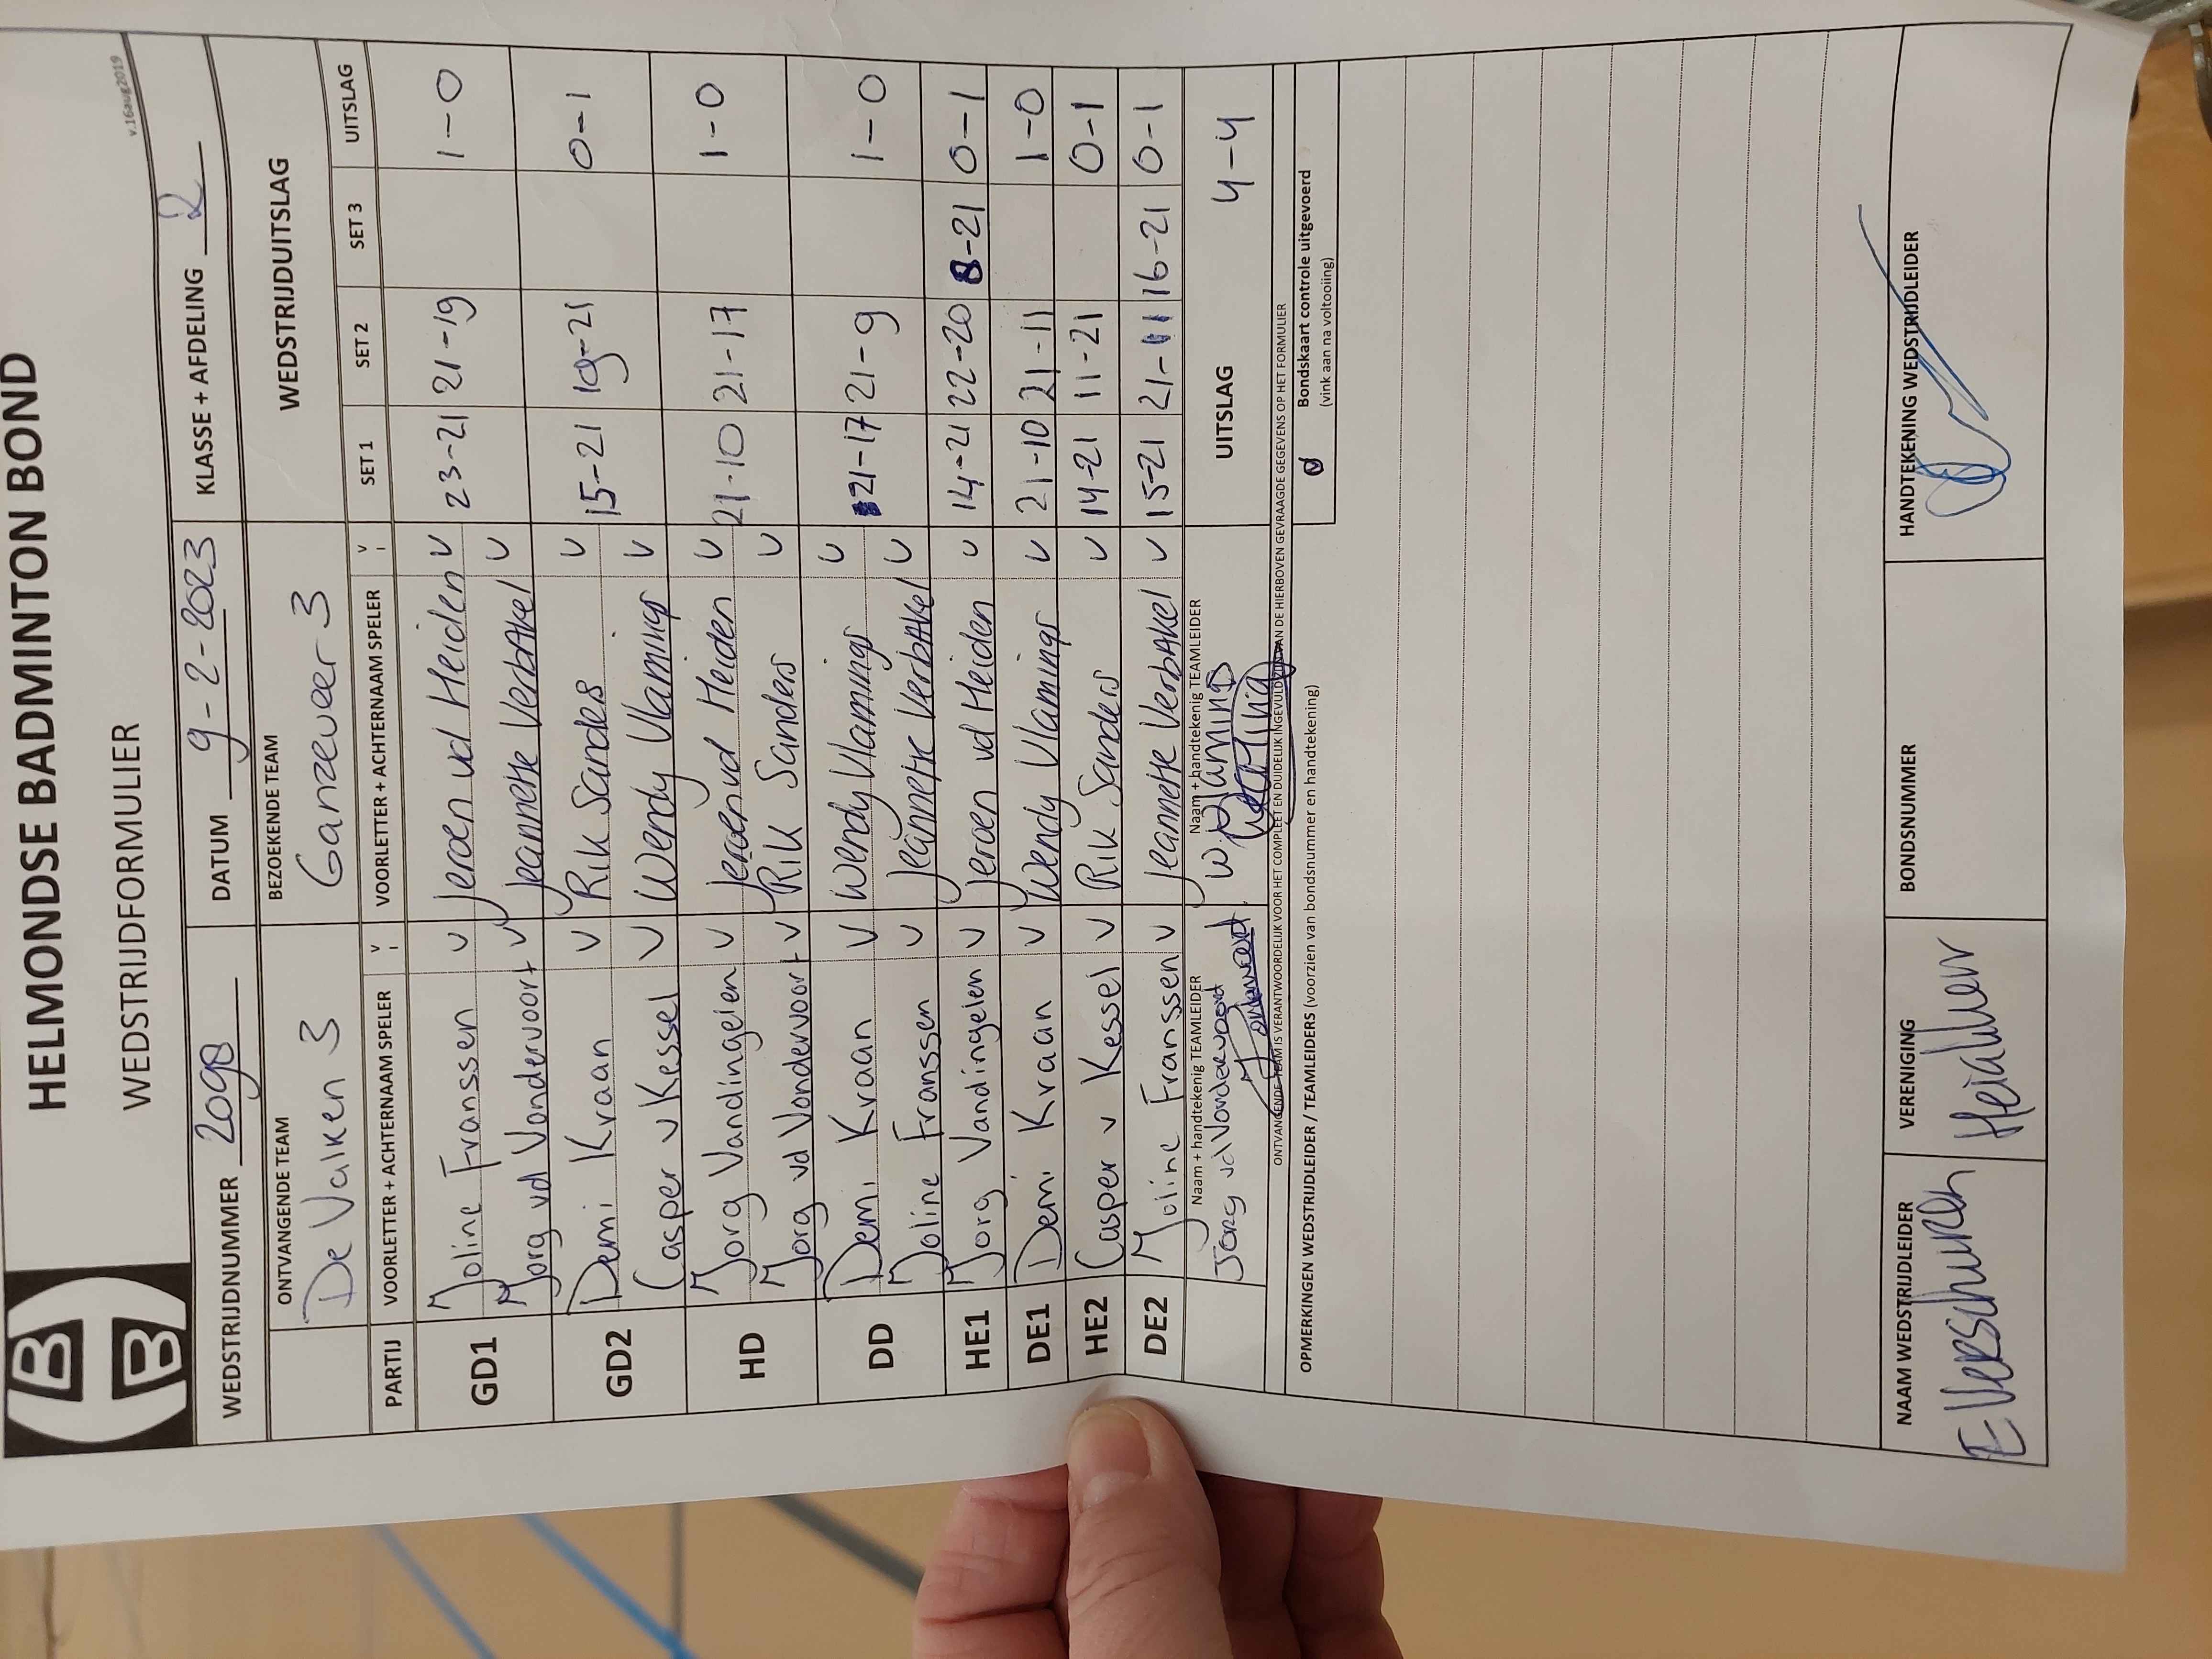 HELMONDSE BADMINTON BOND
WEDSTRIJDFORMULIER
v.16aug2019
WEDSTRIJDNUMMER 2098 DATUM 9-2-2023 KLASSE + AFDELING 2
ONTVANGENDE TEAM BEZOEKENDE TEAM WEDSTRIJDUITSLAG
De Valken 3 Ganzeveer 3
PARTIJ VOORLETTER + ACHTERNAAM SPELER V VOORLETTER + ACHTERNAAM SPELER V SET 1 SET 2 SET 3 UITSLAG
GD1 Joline Franssen v Jeroen vd Heiden v 23-21 21-19 1-0
Jorg vd Vondervoort v Jeannette Verbakel v
GD2 Demi Kraan v Rik Sanders v 15-21 19-21 0-1
Casper v Kessel v Wendy Vlamings v
HD Jorg Vandingeien v Jeroen vd Heiden v 21-10 21-17 1-0
Jorg vd Vondervoort v Rik Sanders v
DD Demi Kraan v Wendy Vlamings v 21-17 21-9 1-0
Joline Franssen v Jeannette Verbakel v
HE1 Jorg Vandingeien v Jeroen vd Heiden v 14-21 22-20 8-21 0-1
DE1 Demi Kraan v Wendy Vlamings v 21-10 21-11 1-0
HE2 Casper v Kessel v Rik Sanders v 14-21 11-21 0-1
DE2 Joline Franssen v Jeannette Verbakel v 15-21 21-11 16-21 0-1
Naam + handtekenig TEAMLEIDER Naam + handtekenig TEAMLEIDER UITSLAG 4-4
Jorg vd Vondervoort W. Vlamings
ONTVANGENDE TEAM IS VERANTWOORDELIJK VOOR HET COMPLEET EN DUIDELIJK INGEVULD ZIJN VAN DE HIERBOVEN GEVRAAGDE GEGEVENS OP HET FORMULIER
OPMERKINGEN WEDSTRIJDLEIDER / TEAMLEIDERS (voorzien van bondsnummer en handtekening)
Bondskaart controle uitgevoerd
(vink aan na voltooiing)
NAAM WEDSTRIJDLEIDER VERENIGING BONDSNUMMER HANDTEKENING WEDSTRIJDLEIDER
E Verschuren